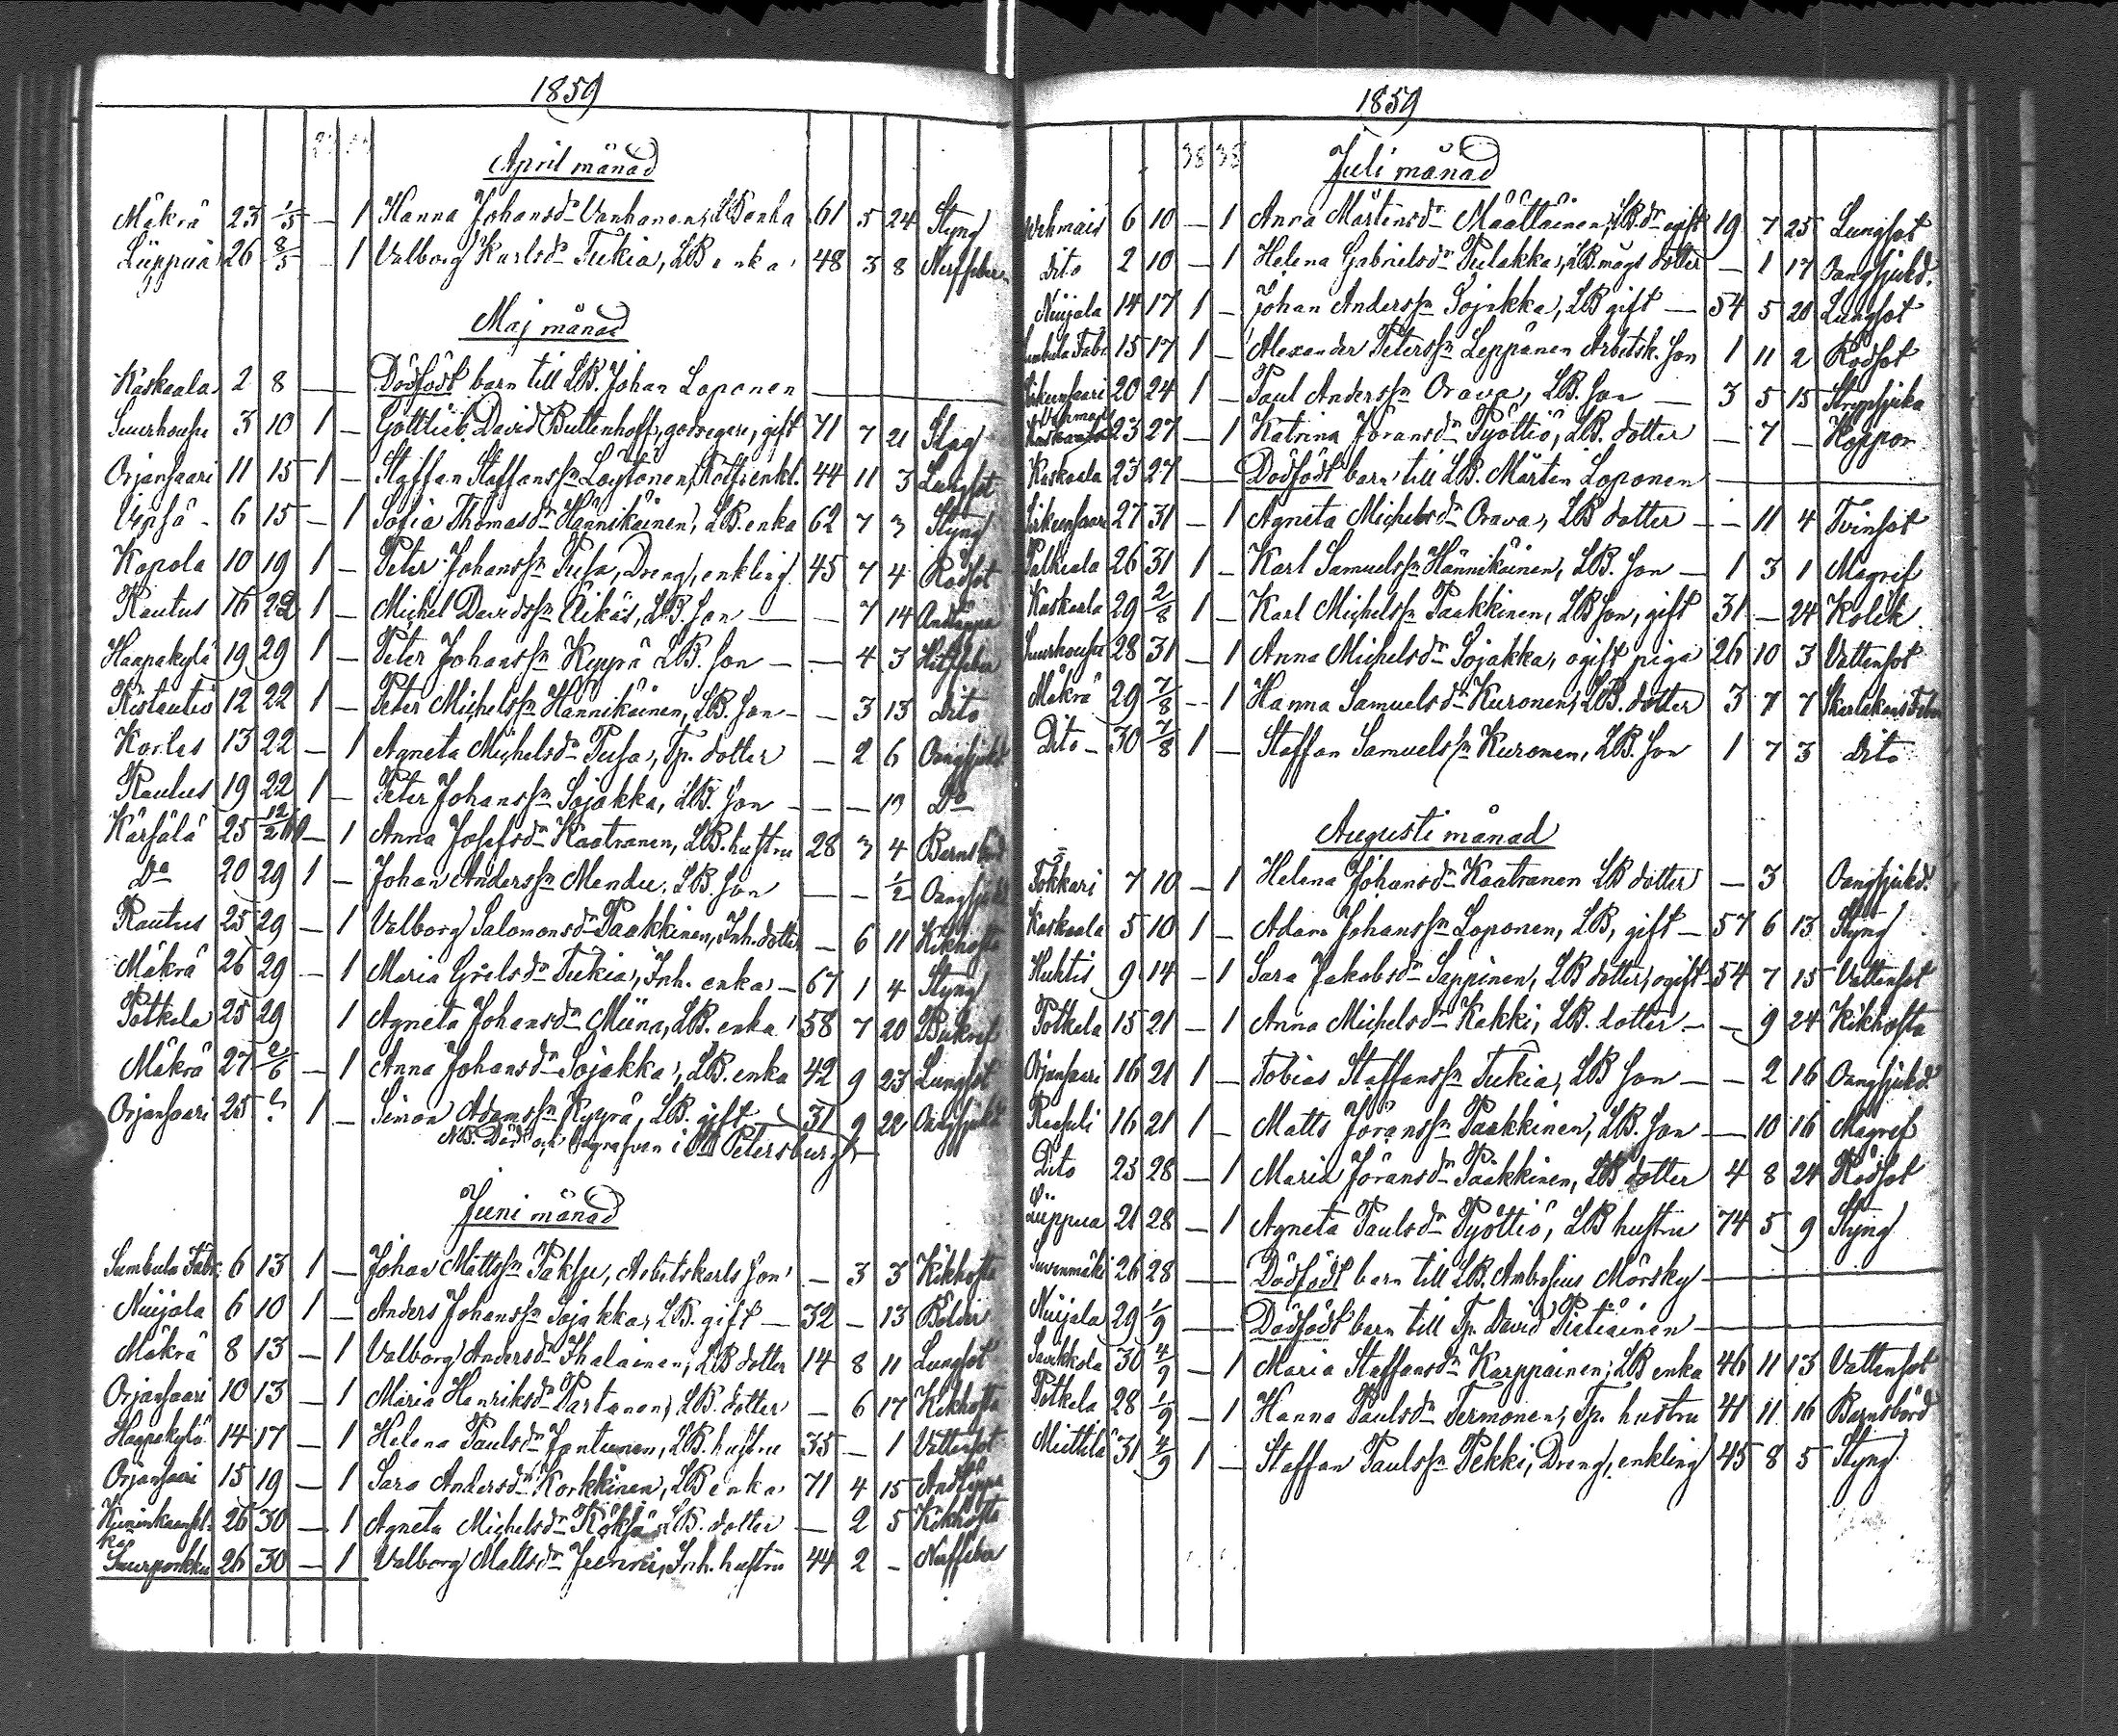 1859
April månad
Mäkrä 23 1/5 — 1 Hanna Johansdr Vanhanen, LB enka 61 5 24 Styng
Liippua 26 8/5 — 1 Valborg Karlsdr Tukia, LB enka 48 3 8 Nerffeber
Maj månad
Kaskaala 2 8 — — Dödfödt barn till LB. Johan Loponen
Suurhousu 3 10 1 — Gottlieb David Buttenhoff, godsegare, gift 71 7 21 Slag
Orjansaari 11 15 1 — Staffan Staffanssn Löytönen, enkl. 44 11 3 Lungsot
Vepsä 6 15 — 1 Sofia Thomasdr Hännikäinen, LB. enka 62 7 3 Styng
Kopola 10 19 1 — Peter Johanssn Pusa, Dreng, enkling 45 7 4 Rödsot
Rautus 16 22 1 — Michel Davidssn Äikäs, LB. son — — 7 14 Andtäppa
Haapakylä 19 29 1 — Peter Johanssn Kyyrä LB. son — — 4 3 Hetsfeber
Ristautio 12 22 1 — Peter Michelssn Hännikäinen, LB. son — — 3 13 dito
Korles 13 22 — 1 Agneta Michelsdr Pusa, Tp. dotter — 2 6 Oangsjukd
Rautus 19 22 1 — Peter Johanssn Sojakka, LB. son — — — 13 Do
Kärsälä 25 — 1 Anna Josefsdr Kaatranen, LB. hustru 28 3 4 Barnsbörd
Do 20 29 1 — Johan Anderssn Mendu, LB. son — — 1/2 Oangsjukd
Rautus 25 29 — 1 Valborg Salomonsdr Paakkinen, Inh. dotter — 6 11 Kikhosta
Mäkrä 26 29 — 1 Maria Grelsdr Tukia, Inh. enka — 67 1 4 Styng
Potkela 25 29 1 Agneta Johansdr Miina, LB. enka 58 7 20 Bukref
Mäkrä 27 2/6 — 1 Anna Johansdr Sojakka, LB. enka 42 9 23 Lungsot
Orjansaari 25 ? 1 — Simon Adamssn Kyyrä, LB. gift 31 9 22 Oangsjukd
NB. Död och begrafven i St Petersburg
Juni månad
Sumbula Fabr. 6 13 1 — Johan Mattssn Paksu, Arbetskarls son — 3 3 Kikhosta
Nuijala 6 10 1 — Anders Johanssn Sojakka, LB. gift — 32 — 13 Bölder
Mäkrä 8 13 — 1 Valborg Andersdr Ihalainen, LB dotter 14 8 11 Lungsot
Orjansaari 10 13 — 1 Maria Henriksdr Partanen, LB. dotter — 6 17 Kikhosta
Haapakylä 14 17 — 1 Helena Paulsdr Jantunen, LB. hustru 35 — 1 Vattusot
Orjansaari 15 19 — 1 Sara Andersdr Korkkinen, LB enka 71 4 15 Andtäppa
26 30 — 1 Agneta Michelsdr Köksä, LB. dotter — 2 5 Kikhosta
Suurporkku 26 30 — 1 Valborg Mattsdr Junni, Inh. hustru 44 2 — Nerffeber
1859
38 38
Juli månad
Vehmais 6 10 — 1 Anna Mårtensdr Määttäinen, LB. dr ogift 19 7 25 Lungsot
dito 2 10 — 1 Helena Gabrielsdr Pulakka, LB. mågs dotter — 1 17 Oangsjukd.
Nuijala 14 17 1 — Johan Anderssn Sojakka, LB gift — 54 5 20 Lungsot
Sumbula Fabr. 15 17 1 — Alexander Peterssn Leppänen Arbetsk. son 1 11 2 Rödsot
Sirkunsaari 20 24 1 — Paul Anderssn Orava, LB. son — 3 5 15 Strypsjuka
Vehmais 23 27 — 1 Katrina Göransdr Pyöttiö, LB. dotter — 7 — Koppor
Kaskaala 23 27 — — Dödfödt barn till LB. Mårten Loponen
Sirkunsaari 27 31 — 1 Agneta Michelsdr Orava, LB dotter — — 11 4 Tvinsot
Palkeala 26 31 1 — Karl Samuelssn Hännikäinen, LB. son — 1 3 1 Magref
Kaskaala 29 2/8 1 — Karl Michelssn Paakkinen, LB son, gift 31 — 24 Kolik
Suurhousu 28 31 — 1 Anna Michelsdr Sojakka, ogift piga 26 10 3 Vattusot
Mäkrä 29 7/8 — 1 Hanna Samuelsdr Kuronen, LB. dotter 3 7 7 Skarlakansfeber
Dito 30 7/8 1 — Staffan Samuelssn Kuronen, LB. son 1 7 3 dito
Augusti månad
Tokkari 7 10 — 1 Helena Johansdr Kaatranen LB dotter — 3 Oangsjukd.
Kaskaala 5 10 1 — Adam Johanssn Loponen, LB, gift — 57 6 13 Styng
Huhtis 9 14 — 1 Sara Jakobsdr Sappinen, LB dotter, ogift 54 7 15 Vattusot
Potkela 15 21 — 1 Anna Michelsdr Kekki, LB. dotter — — 9 24 Kikhosta
Orjansaari 16 21 1 — Tobias Staffanssn Tukia, LB son — — 2 16 Oangsjukd.
Raasuli 16 21 1 — Matts Göranssn Paakkinen, LB. son — 10 16 Magref
Dito 23 28 — 1 Maria Göransdr Paakkinen, LB dotter 4 8 24 Rödsot
Liippua 21 28 — 1 Agneta Paulsdr Pyöttiö, LB hustru 74 5 9 Styng
Suvenmäki 26 28 — — Dödfödt barn till LB. Ambrosius Mörsky
Nuijala 29 1/9 — — Dödfödt barn till Tp. David Pietiäinen
Savikkola 30 4/9 — 1 Maria Staffansdr Karppainen, LB enka 46 11 13 Vattusot
Potkela 28 1/9 — 1 Hanna Paulsdr Termonen, Tp. hustru 41 11 16 Barnsbörd
Miettilä 31 4/9 1 — Staffan Paulssn Pekki, Dreng, enkling 45 8 5 Styng